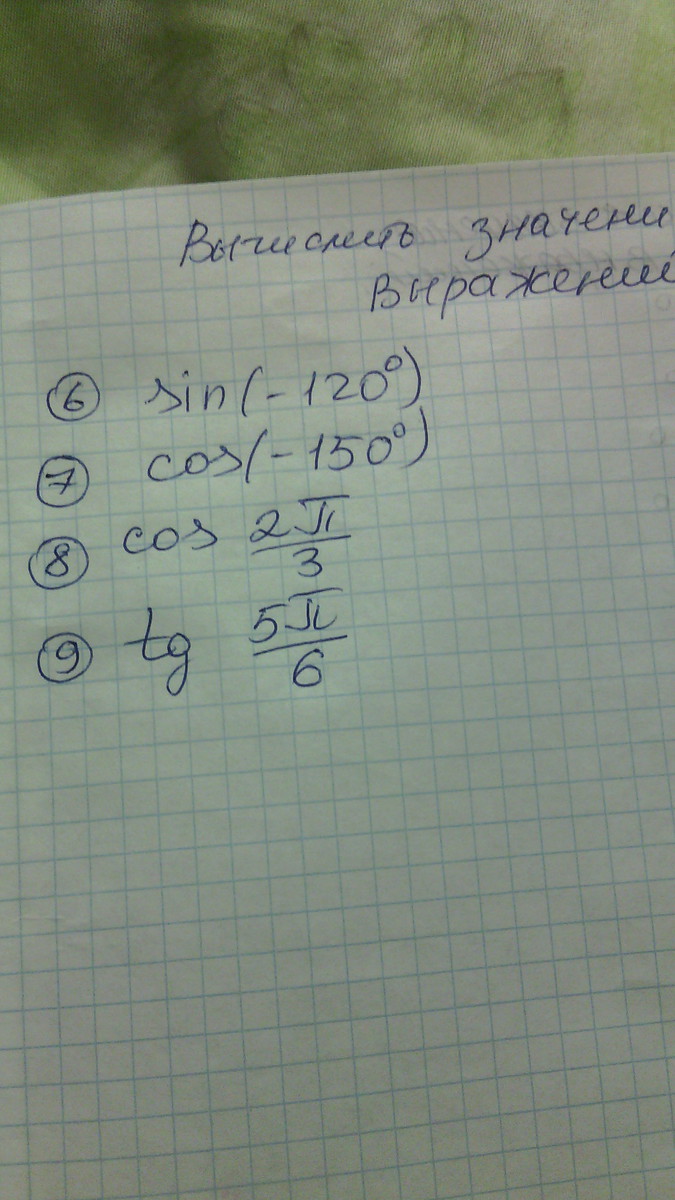 Вычислить значени
выражений
⑥ sin(-120°)
⑦ cos(-150°)
⑧ cos 2π/3
⑨ tg 5π/6